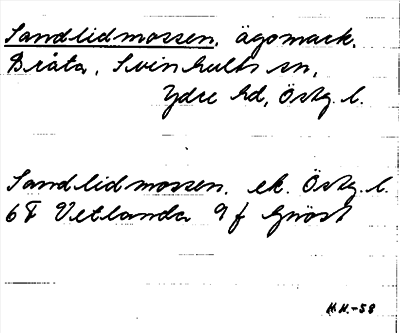 Sandlidmossen, ägomark,
Bråta, Svinhults sn,
Ydre hd, Östg. l.
Sandlidmossen, ek. Östg. l.
6F Vetlanda 9 f Gnöst
H.H.-58